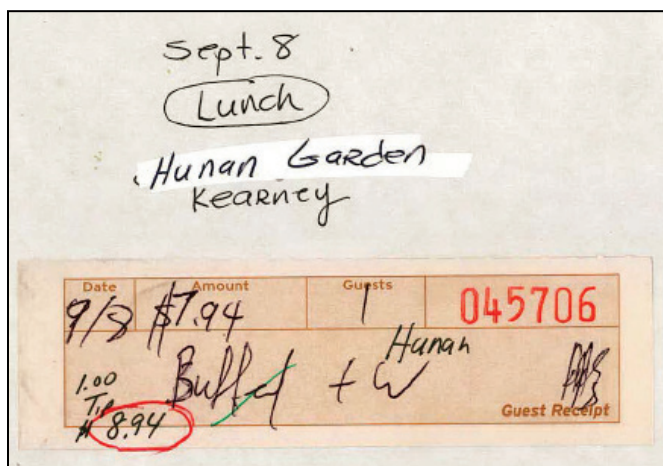 Sept. 8
Lunch
Hunan Garden
Kearney
Date Amount Guests
9/8 $7.94 1 045706
Hunan
Buffet + W
1.00
Tip
$ 8.94
Guest Receipt